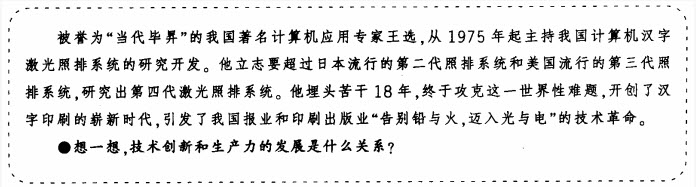 被誉为“当代毕昇”的我国著名计算机应用专家王选,从1975年起主持我国计算机汉字
激光照排系统的研究开发。他立志要超过日本流行的第二代照排系统和美国流行的第三代照
排系统,研究出第四代激光照排系统。他埋头苦干18年,终于攻克这一世界性难题,开创了汉
字印刷的崭新时代,引发了我国报业和印刷出版业“告别铅与火,迈入光与电”的技术革命。
●想一想,技术创新和生产力的发展是什么关系?